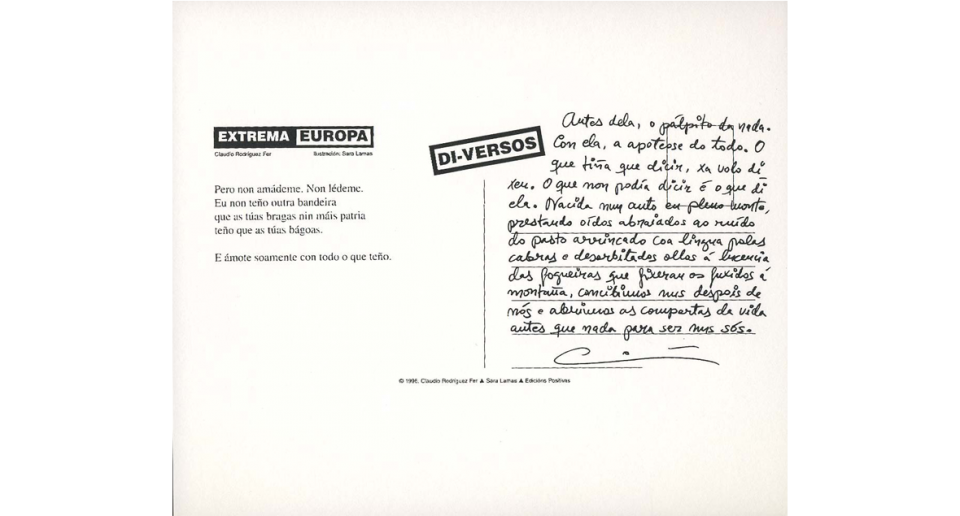 EXTREMA EUROPA
Claudio Rodríguez Fer Ilustración: Sara Lamas
Pero non amádeme. Non lédeme.
Eu non teño outra bandeira
que as túas bragas nin máis patria
teño que as túas bágoas.
E ámote soamente con todo o que teño.
DI-VERSOS
Antes dela, o pálpito da nada.
Con ela, a apoteose do todo. O
que tiña que dicir, xa volo di
xeu. O que non podía dicir é o que di
ela. Nacida nun auto en pleno monte,
prestando oídos abraiados ao ruído
do pasto arrincado coa lingua polas
cabras e desorbitados ollos á lucencia
das fogueiras que fixeran os fuxidos á
montaña, concibimos nus despois de
nós e abrimos as comportas da vida
antes que nada para ser nus sós.
© 1996, Claudio Rodríguez Fer ▲ Sara Lamas ▲ Edicións Positivas